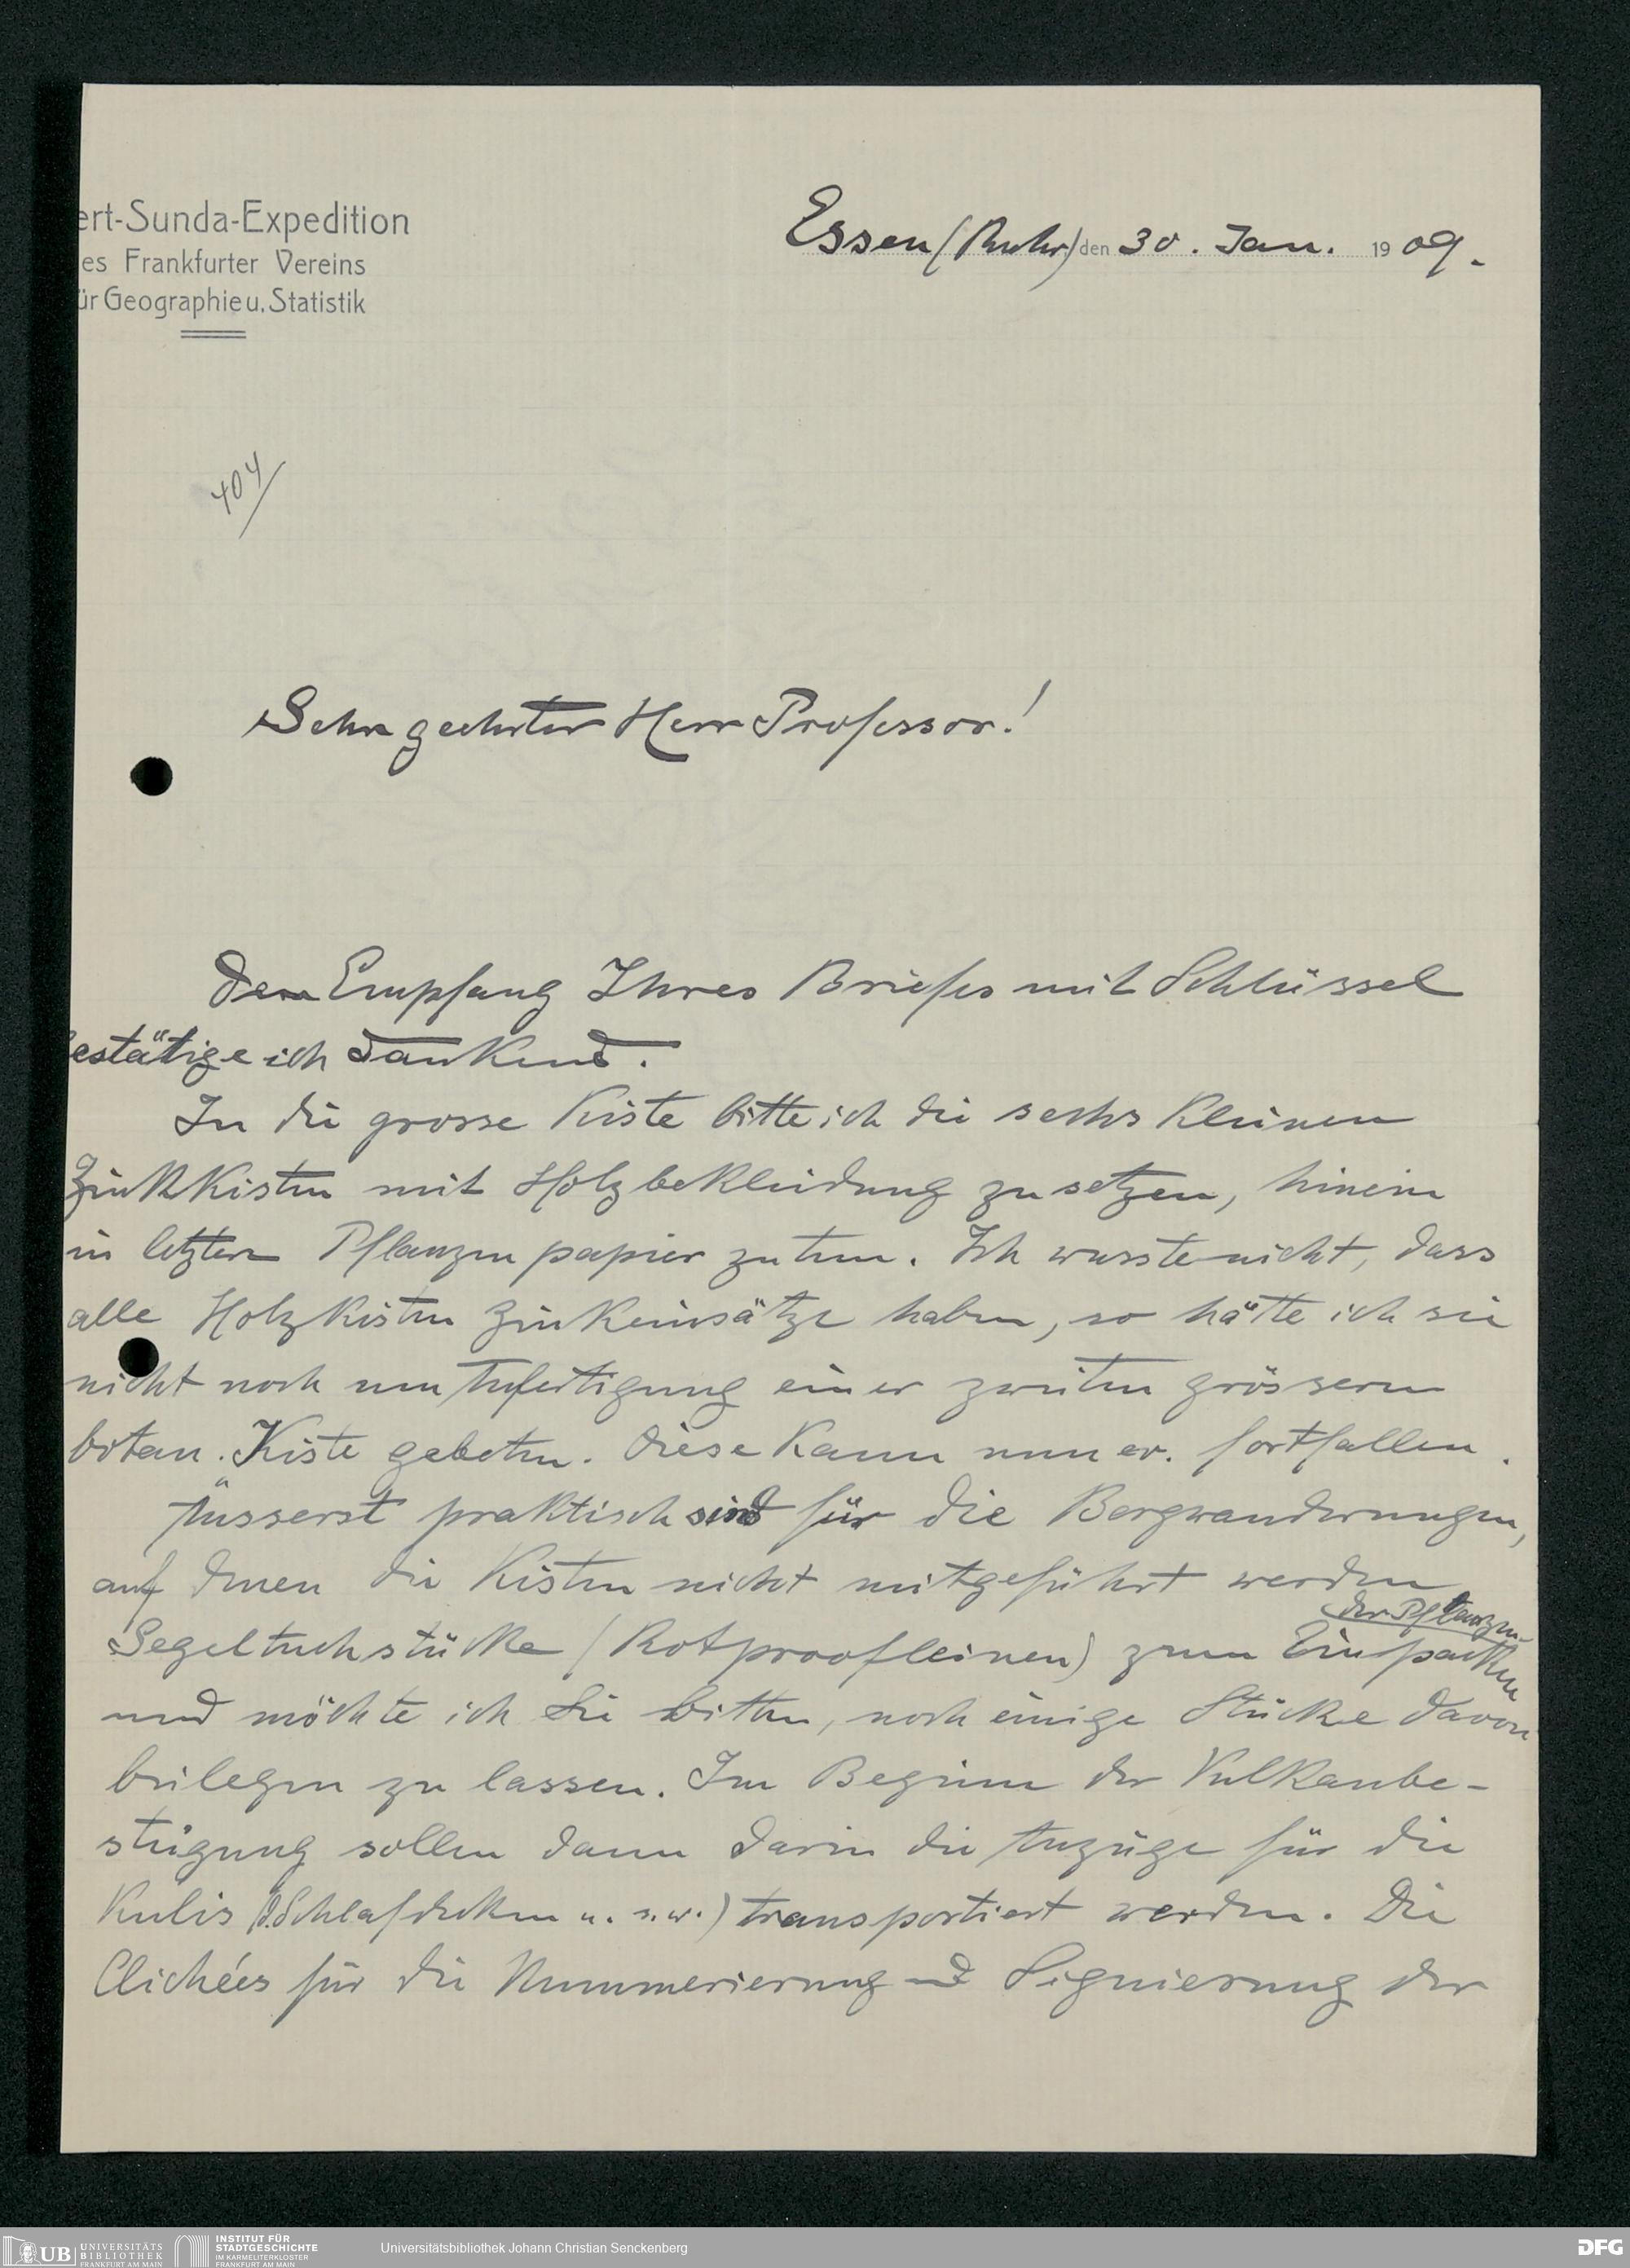 ert-Sunda-Expedition
es Frankfurter Vereins
ür Geographie u. Statistik
Essen (Ruhr) den 30. Jan. 1909.
404
Sehr geehrter Herr Professor!
Den Empfang Ihres Briefes mit Schlüssel
estätige ich dankend.
In die grosse Kiste bitte ich die sechs kleinen
Zinkkisten mit Holzbekleidung zu setzen, hinein
in letztere Pflanzenpapier zu tun. Ich wusste nicht, dass
alle Holzkisten Zinkeinsätze haben, so hätte ich sie
nicht noch um Anfertigung einer zweiten grösseren
botan. Kiste gebeten. Diese kann nun ev. fortfallen.
Äusserst praktisch sind für die Bergwanderungen,
auf denen die Kisten nicht mitgeführt werden
der Pflanzen
Segeltuchstücke (Rotproofleinen) zum Einpacken
und möchte ich Sie bitten, noch einige Stücke davon
beilegen zu lassen. Im Beginn der Vulkanbe-
steigung sollen dann darin die Anzüge für die
Kulis Schlafdecken u. s. w.) transportiert werden. Die
Clichées für die Nummerierung und Signierung der
UB UNIVERSITÄTS
BIBLIOTHEK
FRANKFURT AM MAIN
INSTITUT FÜR
STADTGESCHICHTE
IM KARMELITERKLOSTER
FRANKFURT AM MAIN
Universitätsbibliothek Johann Christian Senckenberg
DFG